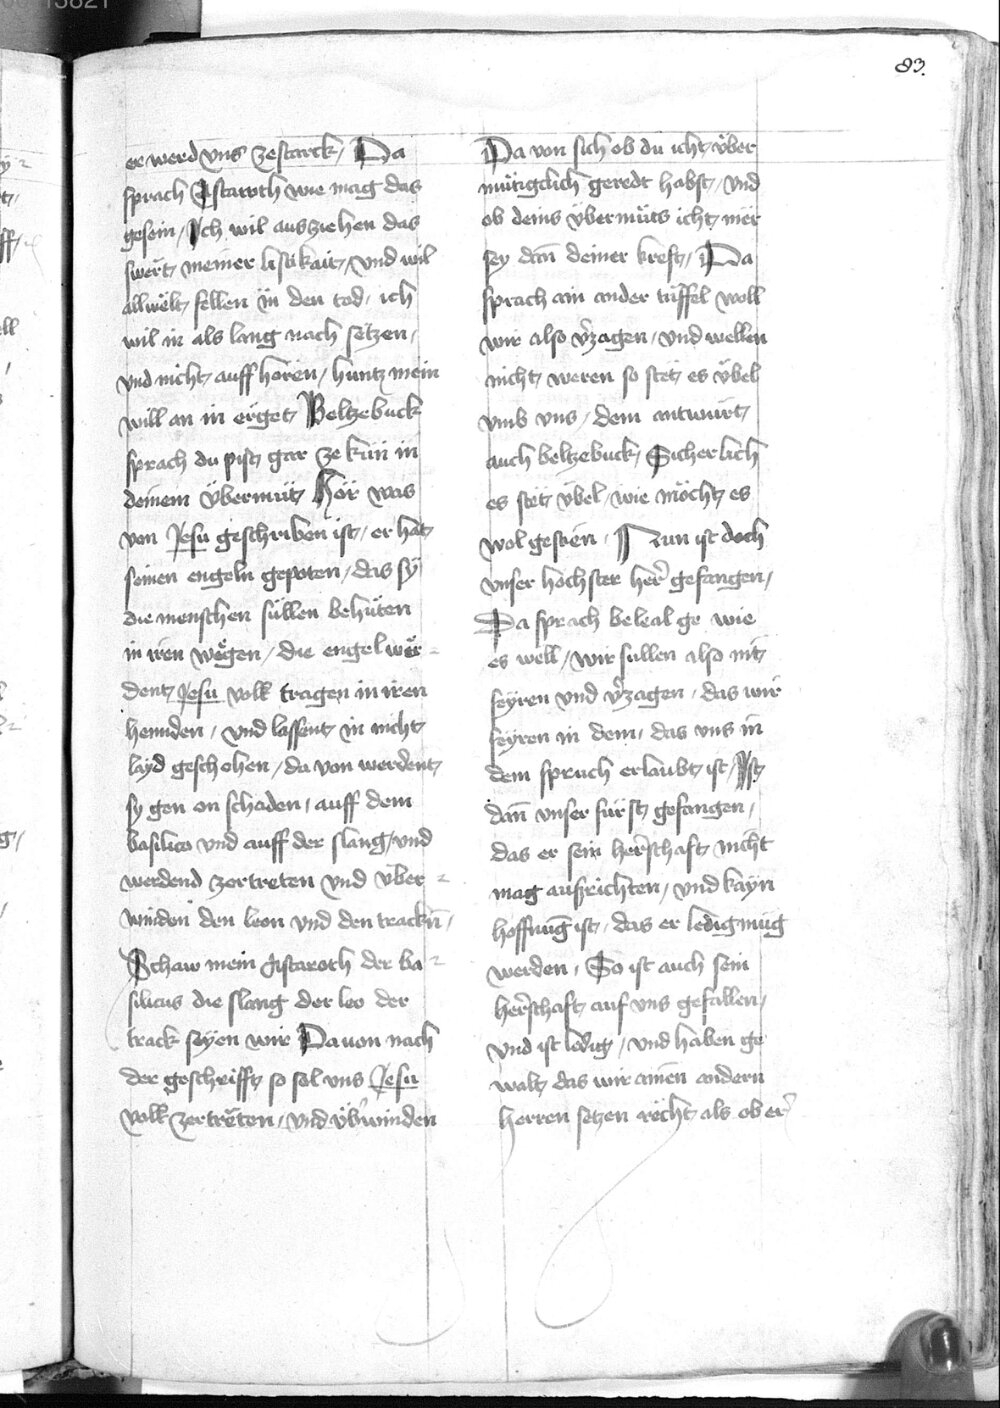 83.
er werd vns zestarck / Da
sprach Astaroth wie mag das
gesein / Ich wil ausziehen das
swert meiner listikait / vnd wil
all welt fellen in den tod / ich
wil in als lang nach setzen /
vnd nicht auff hören / huntz mein
will an in erget / Beltzebuck
sprach du pist gar ze kün in
deinem übermüt Hör was
von Jesu geschriben ist / er hat
seinen engeln gepoten / das sÿ
die menschen süllen behüten
in iren wegen / die engel wer-
dent Jesu volk tragen in iren
hennden / vnd lassent in nicht
layd geschehen / da von werdent
sy gen on schaden / auff dem
basilico vnd auff der slang / vnd
werdend zertreten vnd über-
winden den leon vnd den trackn /
Schaw mein Astaroth der ba-
silicus die slang der leo der
track seyen wir Dauon nach
der geschrifft so sol vns Jesu
volk zertreten / vnd übwinden
Da von sich ob du icht über
mütigclich geredt habst / vnd
ob deins übermüts icht mer
sey dan̄ deiner kreft / Da
sprach ain ander tüffel woll
wir also v̉zagen / vnd wellen
nicht weren so stet es übel
vmb vns / dem antwurt
auch beltzebuck / Sicherlich
es stet übel / wie möcht es
wol gesten / Nun ist doch
vnser höchster her̉ gefangen /
Da sprach beleal ge wie
es well / wir sullen also nit
feyren vnd v̉zagen / das wir
feyren in dem / das vns in
dem spruch erlaubt ist / Ist
dan̄ vnser fürst gefangen /
das er sein her̉schaft nicht
mag ausrichten / vnd kayn
hoffnūg ist / das er ledig müg
werden / So ist auch sein
her̉schaft auf vns gefallen /
vnd ist ledig / vnd haben ge
walt das wir ainen andern
herren setzen recht als ob er̉